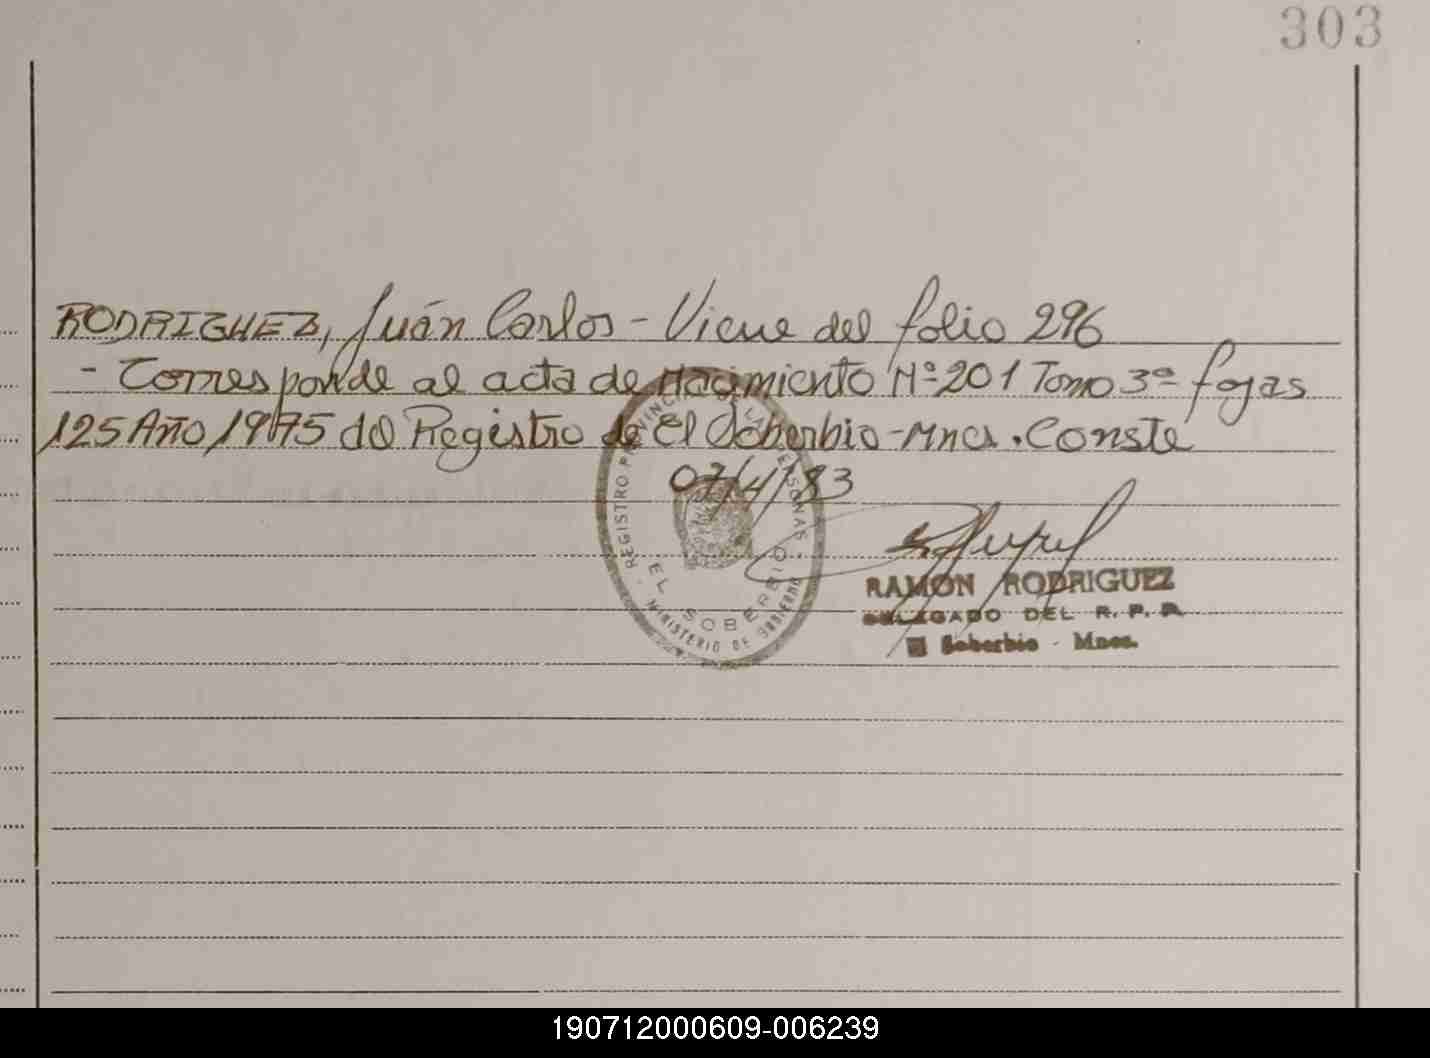 303
RODRIGUEZ, Juán Carlos - Viene del folio 296
- Corresponde al acta de Nacimiento Nº 201 Tomo 3º fojas
125 Año 1975 del Registro de El Soberbio - Mnes. Conste
07/4/83
REGISTRO PROVINCIAL DE LAS PERSONAS
EL SOBERBIO
MINISTERIO DE GOBIERNO
RAMON RODRIGUEZ
DELEGADO DEL R. P. P.
El Soberbio - Mnes.
190712000609-006239